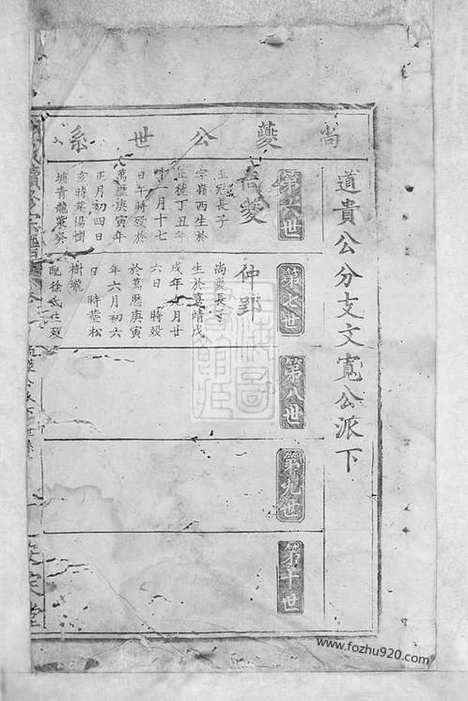 道貴公分支文寬公派下
尚夔公世系
第六世
尚夔
玉冠長子
字嶺西生於
正德丁丑年
十一月十七
日午時歿於
萬曆庚寅年
正月初四日
亥時葬楊樹
墉青龍葉癸
第七世
仲郢
尚夔長子
生於嘉靖戊
戌年 月廿
六日 時歿
於萬曆庚寅
年六月初六
日 時葬松
樹墩
配徐氏生歿
第八世
第九世
第十世
www.fozhu920.com